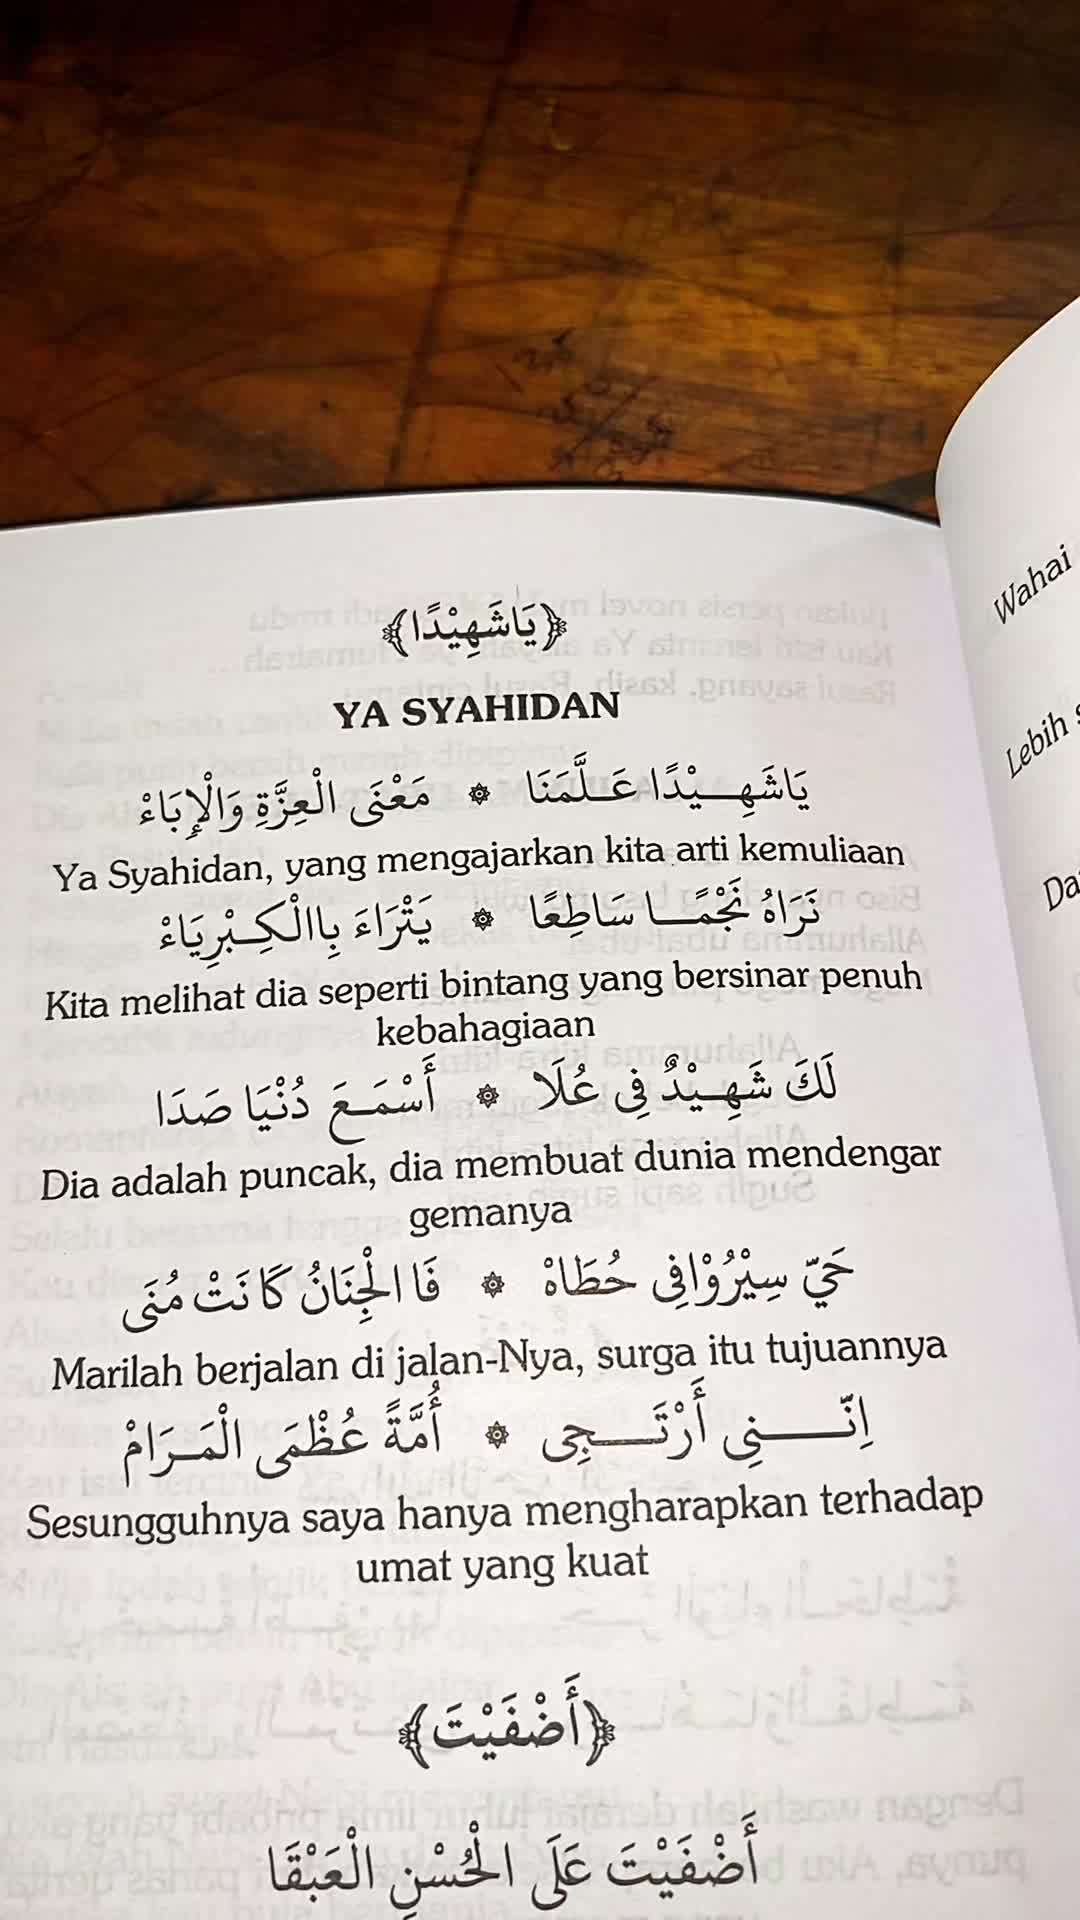 ﴿يَاشَهِيْدًا﴾
YA SYAHIDAN
يَاشَهِـــيْدًا عَـلَّمَنَا ۞ مَعْنَى الْعِزَّةِ وَالْإِبَاءْ
Ya Syahidan, yang mengajarkan kita arti kemuliaan
نَرَاهُ نَجْمًـــا سَاطِعًا ۞ يَتْرَاءَ بِاالْكِـبْرِيَاءْ
Kita melihat dia seperti bintang yang bersinar penuh
kebahagiaan
لَكَ شَهِـيْدٌ فِي عُلَا ۞ أَسْمَـعَ دُنْيَا صَدَا
Dia adalah puncak, dia membuat dunia mendengar
gemanya
حَيّ سِيْرُوْافِي حُطَاهْ ۞ فَا الْجِنَانُ كَانَتْ مُنَى
Marilah berjalan di jalan-Nya, surga itu tujuannya
اِنّـــــنِي أَرْتَـــجِى ۞ أُمَّةً عُظْمَى الْمَـرَامْ
Sesungguhnya saya hanya mengharapkan terhadap
umat yang kuat
﴿أَضْفَيْتَ﴾
أَضْفَيْتَ عَلَى الْحُسْنِ الْعَبْقَا
Wahai
Lebih